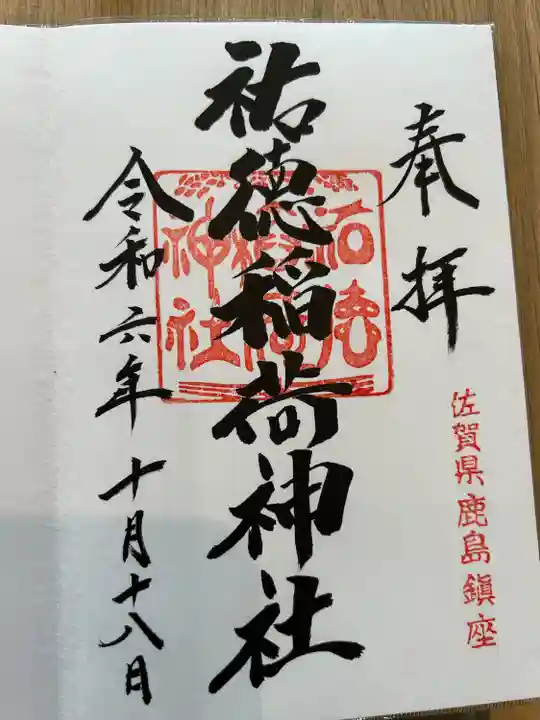 奉拝
佐賀県鹿島鎮座
祐徳稲荷神社
祐徳
稲荷
神社
令和六年十月十八日